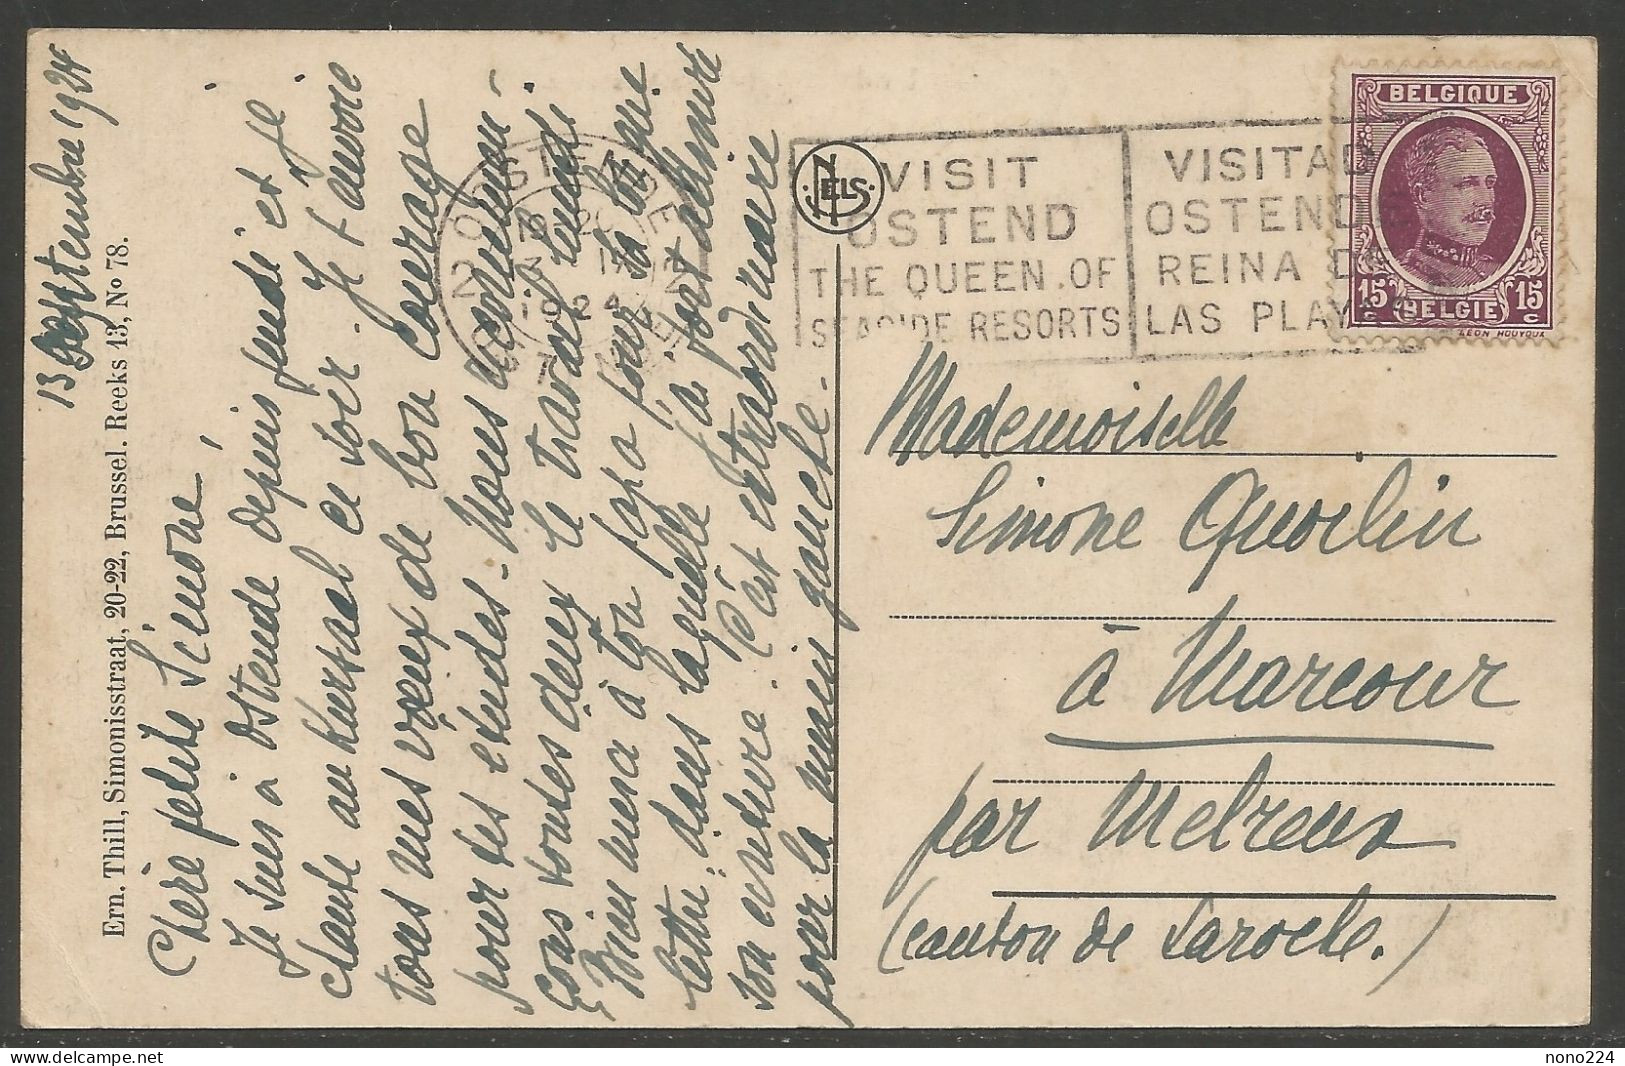 13 Septembre 1924
Chère petite Simone,
Je suis à Ostende depuis jeudi et je
chante au Kursaal ce soir. Je t'envoie
tous mes vœux de bon courage
pour tes études. Nous
tous deux le travail lundi
Merci à ton papa pour sa longue
lettre, dans laquelle j'ai fort admiré
son écriture. C'est extraordinaire
pour la main gauche.
Ern. Thill, Simonisstraat, 20-22, Brussel. Reeks 13, No 78.
NELS
OSTENDE
1924
VISIT
OSTEND
THE QUEEN OF
SEASIDE RESORTS
VISITAD
OSTENDE
REINA DE
LAS PLAYAS
BELGIQUE
15c BELGIE 15c
LEON HOUYOUX
Mademoiselle
Simone Quorlin
à Marcour
par Melreux
(canton de Laroche.)
nono224